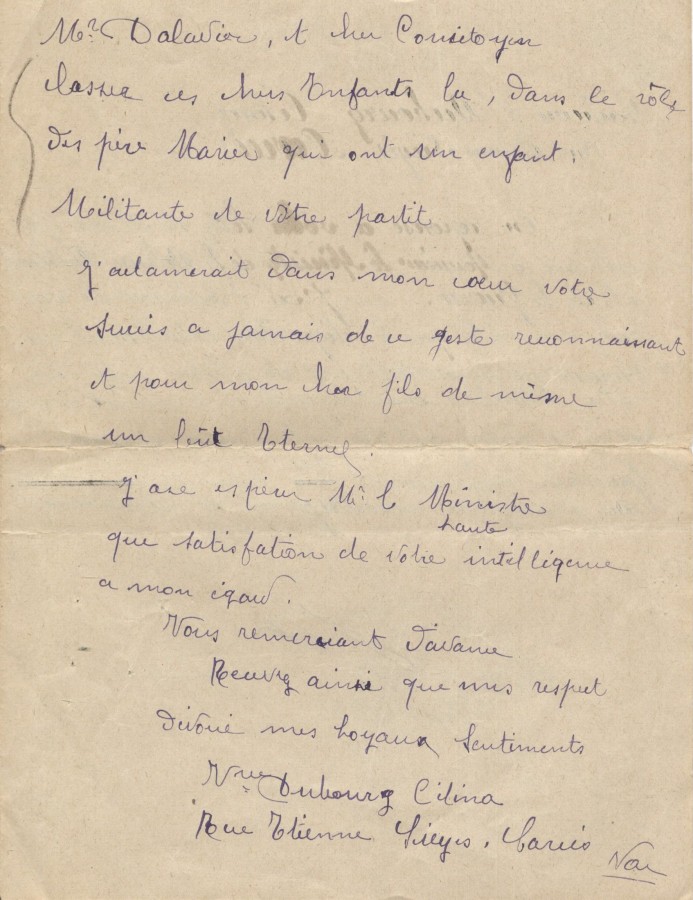 Mr Daladier, et cher Concitoyen
Classer ces chers Enfants la, dans le rôle
des père Marier qui ont un enfant.
Militante de vôtre partit
J'aclamerait dans mon cœur votre
Succès a jamais de ce geste reconnaissant
et pour mon cher fils de même
un Eternel
J'ose espérer Mr le Ministre
haute
que satisfation de votre intelligence
a mon égard.
Vous remerciant d'avance
Recevez ainsi que mes respect
dévoué mes Loyaux Sentiments
Vve Dubourg Célina
Rue Etienne Sieyes
Var